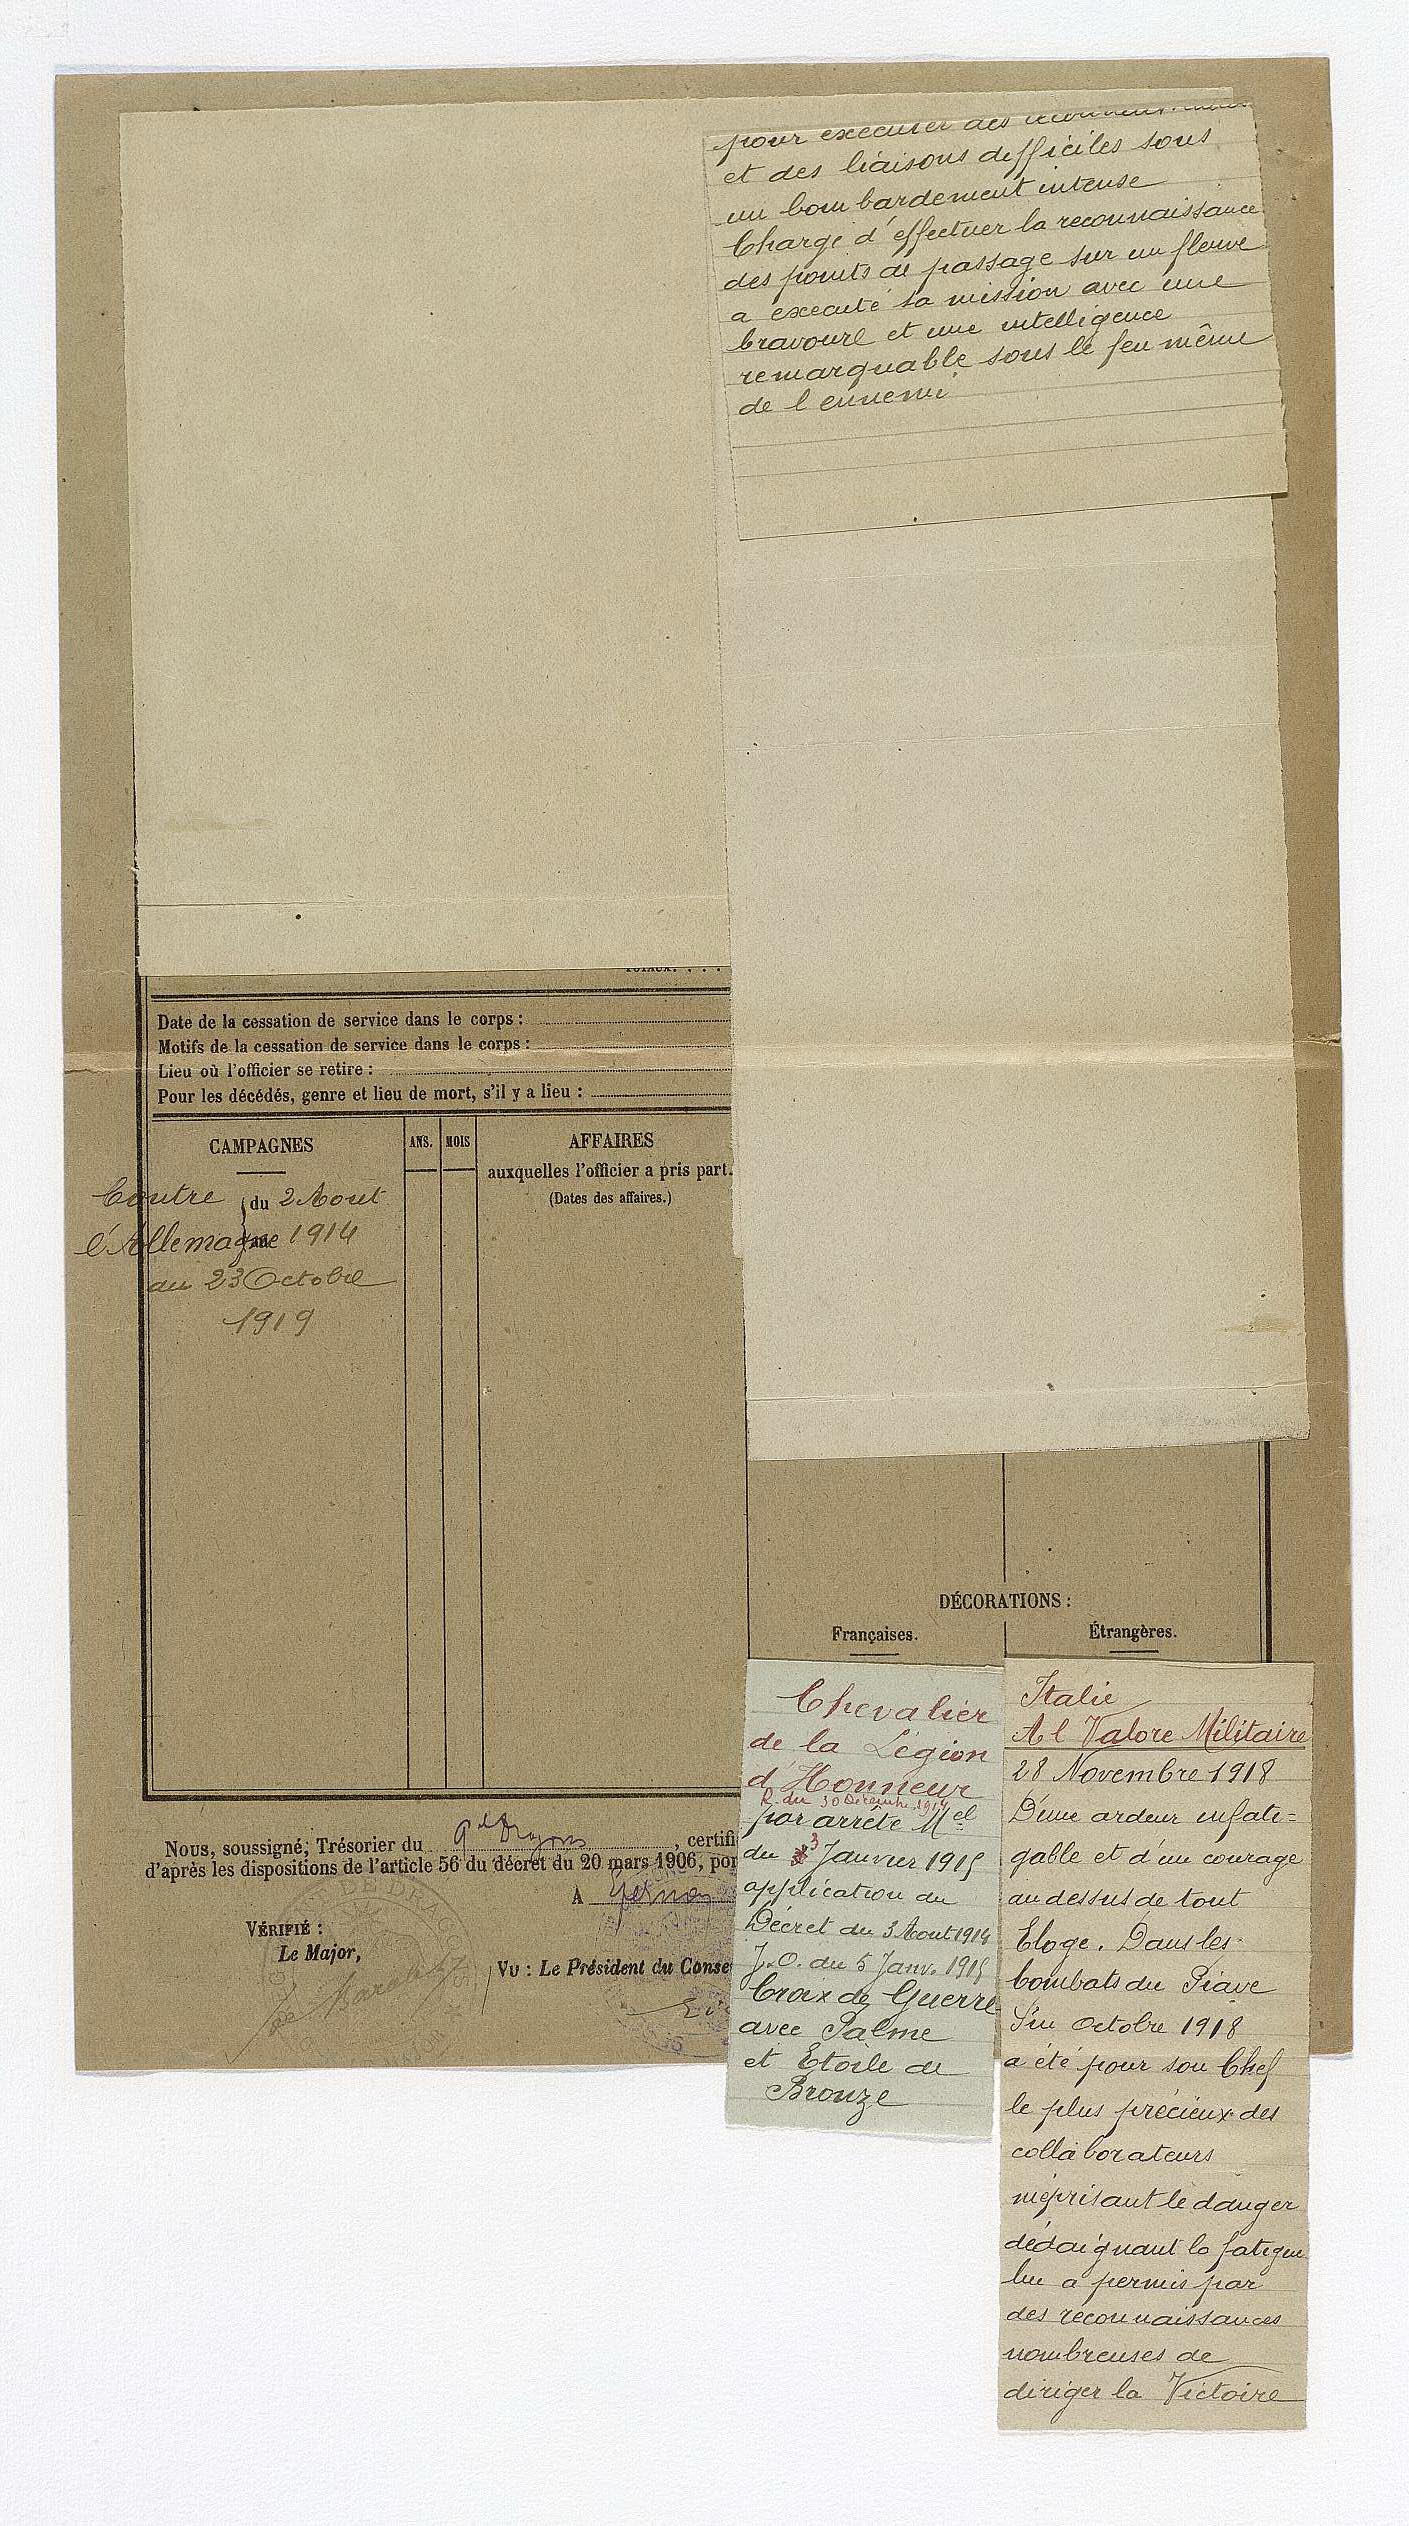 pour executer des
et des liaisons difficiles sous
un bombardement intense
Chargé d'effectuer la reconnaissance
des points de passage sur un fleuve
a executé sa mission avec une
bravoure et une intelligence
remarquable sous le feu même
de l'ennemi
TOTAUX. . . .
Date de la cessation de service dans le corps :
Motifs de la cessation de service dans le corps :
Lieu où l'officier se retire :
Pour les décédés, genre et lieu de mort, s'il y a lieu :
CAMPAGNES
ANS.
MOIS
AFFAIRES
auxquelles l'officier a pris part.
(Dates des affaires.)
Contre du 2 Aout
l'Allemagne au 1914
au 23 Octobre
1919
DÉCORATIONS :
Françaises.
Étrangères.
Chevalier
de la Légion
d'Honneur
R. du 30 Décembre 1914
par arrêté Mel
du 3 Janvier 1915
application du
Décret du 3 Aout 1914
J.O. du 5 Janv. 1915
Croix de Guerre
avec Palme
et Etoile de
Bronze
Italie
Al Valore Militaire
28 Novembre 1918
D'une ardeur infati=
gable et d'un courage
au dessus de tout
Eloge. Dans les
Combats du Piave
Fin octobre 1918
a été pour son Chef
le plus précieux des
collaborateurs
méprisant le danger
dédaignant la fatigue
lui a permis par
des reconnaissances
nombreuses de
diriger la Victoire
Nous, soussigné, Trésorier du 9e Dragons, certifi
d'après les dispositions de l'article 56 du décret du 20 mars 1906, por
A Epernay
VÉRIFIÉ :
Le Major,
Vu : Le Président du Conse